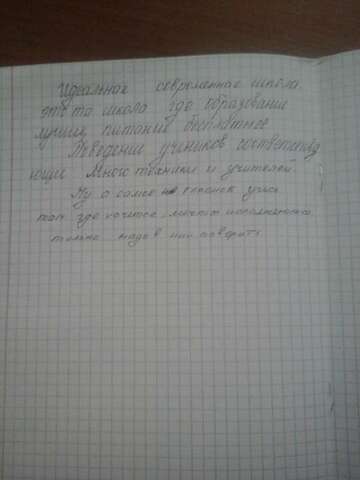 Идеальная современная школа
это та школа где образование
лучшее, питание бесплатное
Поведение учеников соответствую
ющее Много техники и учителей.
Ну а самое учись
там где хочется, мечты исполняются
только надо в них поверить.